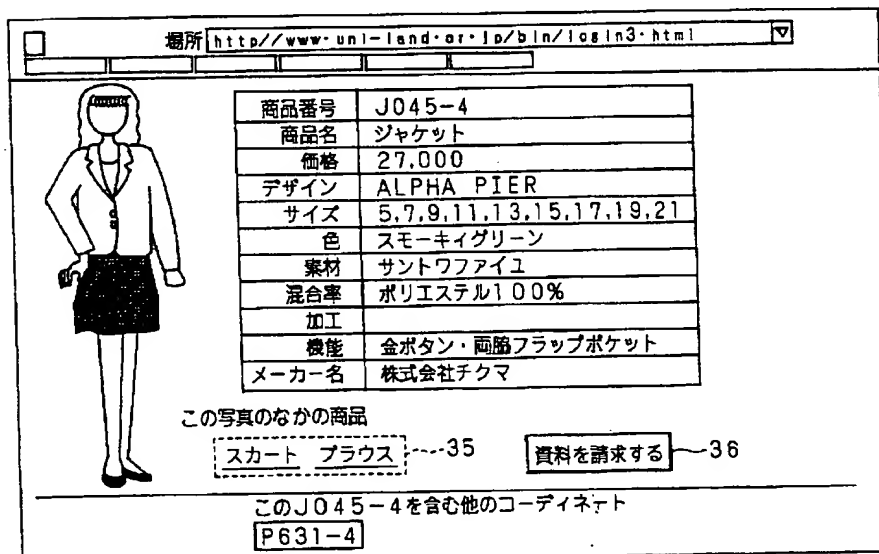 場所 http//www・uni-land・or・jp/bin/login3・html
商品番号 J045-4
商品名 ジャケット
価格 27,000
デザイン ALPHA PIER
サイズ 5,7,9,11,13,15,17,19,21
色 スモーキィグリーン
素材 サントワファイユ
混合率 ポリエステル100%
加工
機能 金ボタン・両脇フラップポケット
メーカー名 株式会社チクマ
この写真のなかの商品
スカート ブラウス 35 資料を請求する 36
このJ045-4を含む他のコーディネート
P631-4